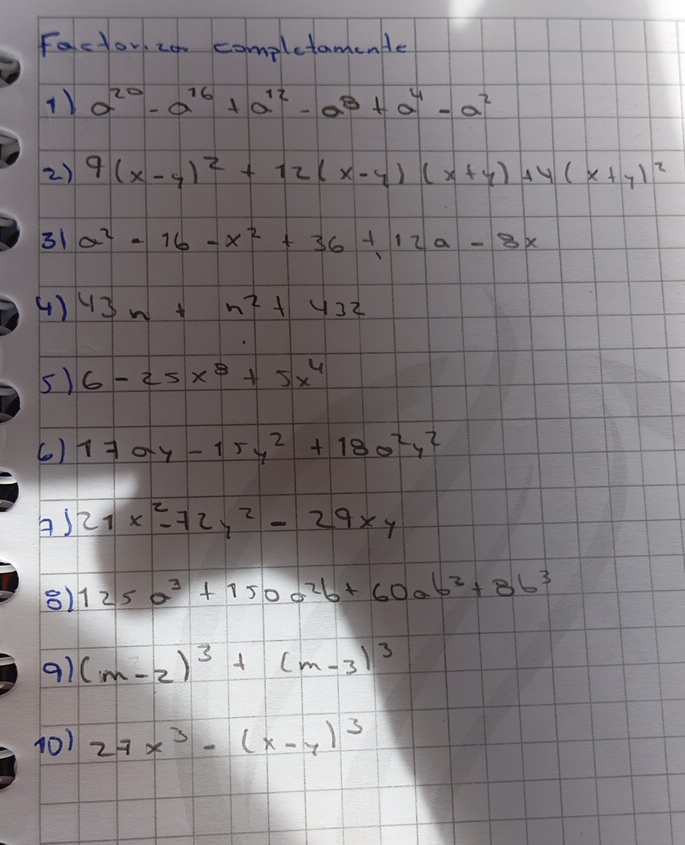 Factorizar completamente
1) a²⁰ - a¹⁶ + a¹² - a⁸ + a⁴ - a²
2) 9(x-y)² + 12(x-y)(x+y)+4(x+y)²
3) a² - 16 - x² + 36 + 12a - 8x
4) 43n + n² + 432
5) 6 - 25x⁸ + 5x⁴
6) 17ay - 15y² + 18a²y²
7) 21x²-72y² - 29xy
8) 125a³ + 150a²b + 60ab² + 8b³
9) (m-2)³ + (m-3)³
10) 27x³ - (x-y)³